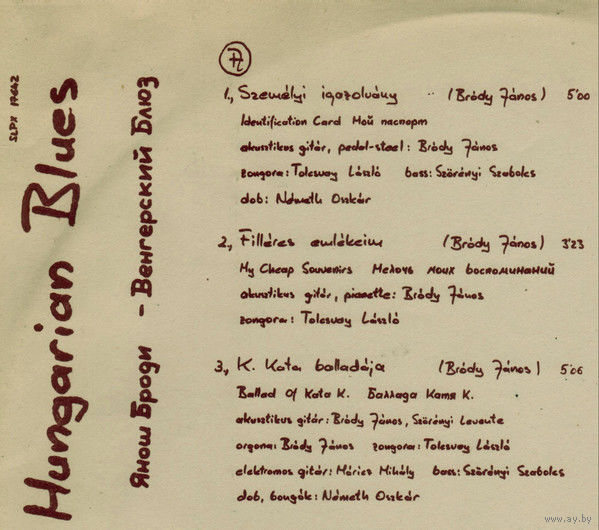 SLPX 17642
Hungarian Blues
Янош Броди - Венгерский Блюз
A
1., Személyi igazolvány (Bródy János) 5'00
Identification Card Мой паспорт
akusztikus gitár, pedal-steel: Bródy János
zongora: Tolcsvay László bass: Szörényi Szabolcs
dob: Németh Oszkár
2., Filléres emlékeim (Bródy János) 3'23
My Cheap Souvenirs Мелочь моих воспоминаний
akusztikus gitár, pianette: Bródy János
zongora: Tolcsvay László
3., K. Kata balladája (Bródy János) 5'06
Ballad Of Kata K. Баллада Катя К.
akusztikus gitár: Bródy János, Szörényi Levente
orgona: Bródy János zongora: Tolcsvay László
elektromos gitár: Móricz Mihály bass: Szörényi Szabolcs
dob, bongók: Németh Oszkár
www.ay.by